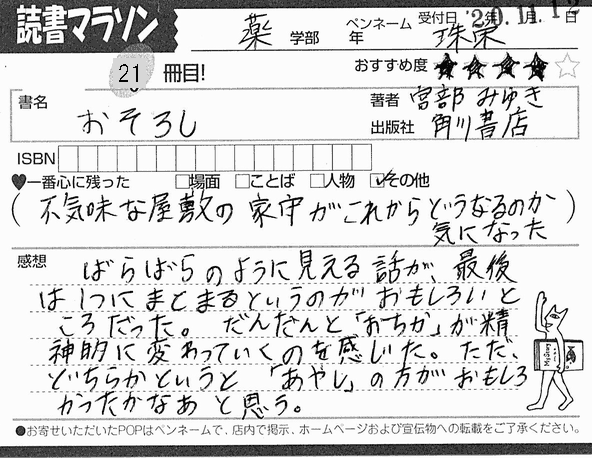 読書マラソン
薬 学部 年 ペンネーム 珠菜 受付日 '20.11.12 年 月 日
21 冊目! おすすめ度 ★★★★☆
書名 おそろし
著者 宮部 みゆき
出版社 角川書店
ISBN
♥一番心に残った □場面 □ことば □人物 ☑その他
(不気味な屋敷の家守がこれからどうなるのか
気になった)
感想 ばらばらのように見える話が、最後
は1つにまとまるというのがおもしろいと
ころだった。だんだんと「おちか」が精
神的に変わっていくのを感じた。ただ、
どちらかというと「あやし」の方がおもしろ
かったかなあと思う。
●お寄せいただいたPOPはペンネームで、店内で掲示、ホームページおよび宣伝物への転載をご了承ください。